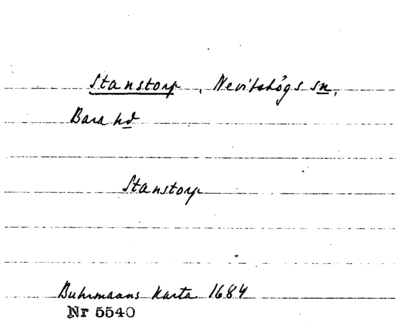 Stanstorp, Nevitshögs sn,
Bara hd
Stanstorp
Buhrmans Karta 1684
Nr 5540